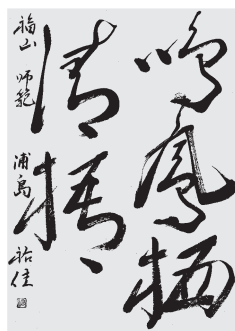 鳴鳳栖
清梧
福山 師範 浦島 祐佳